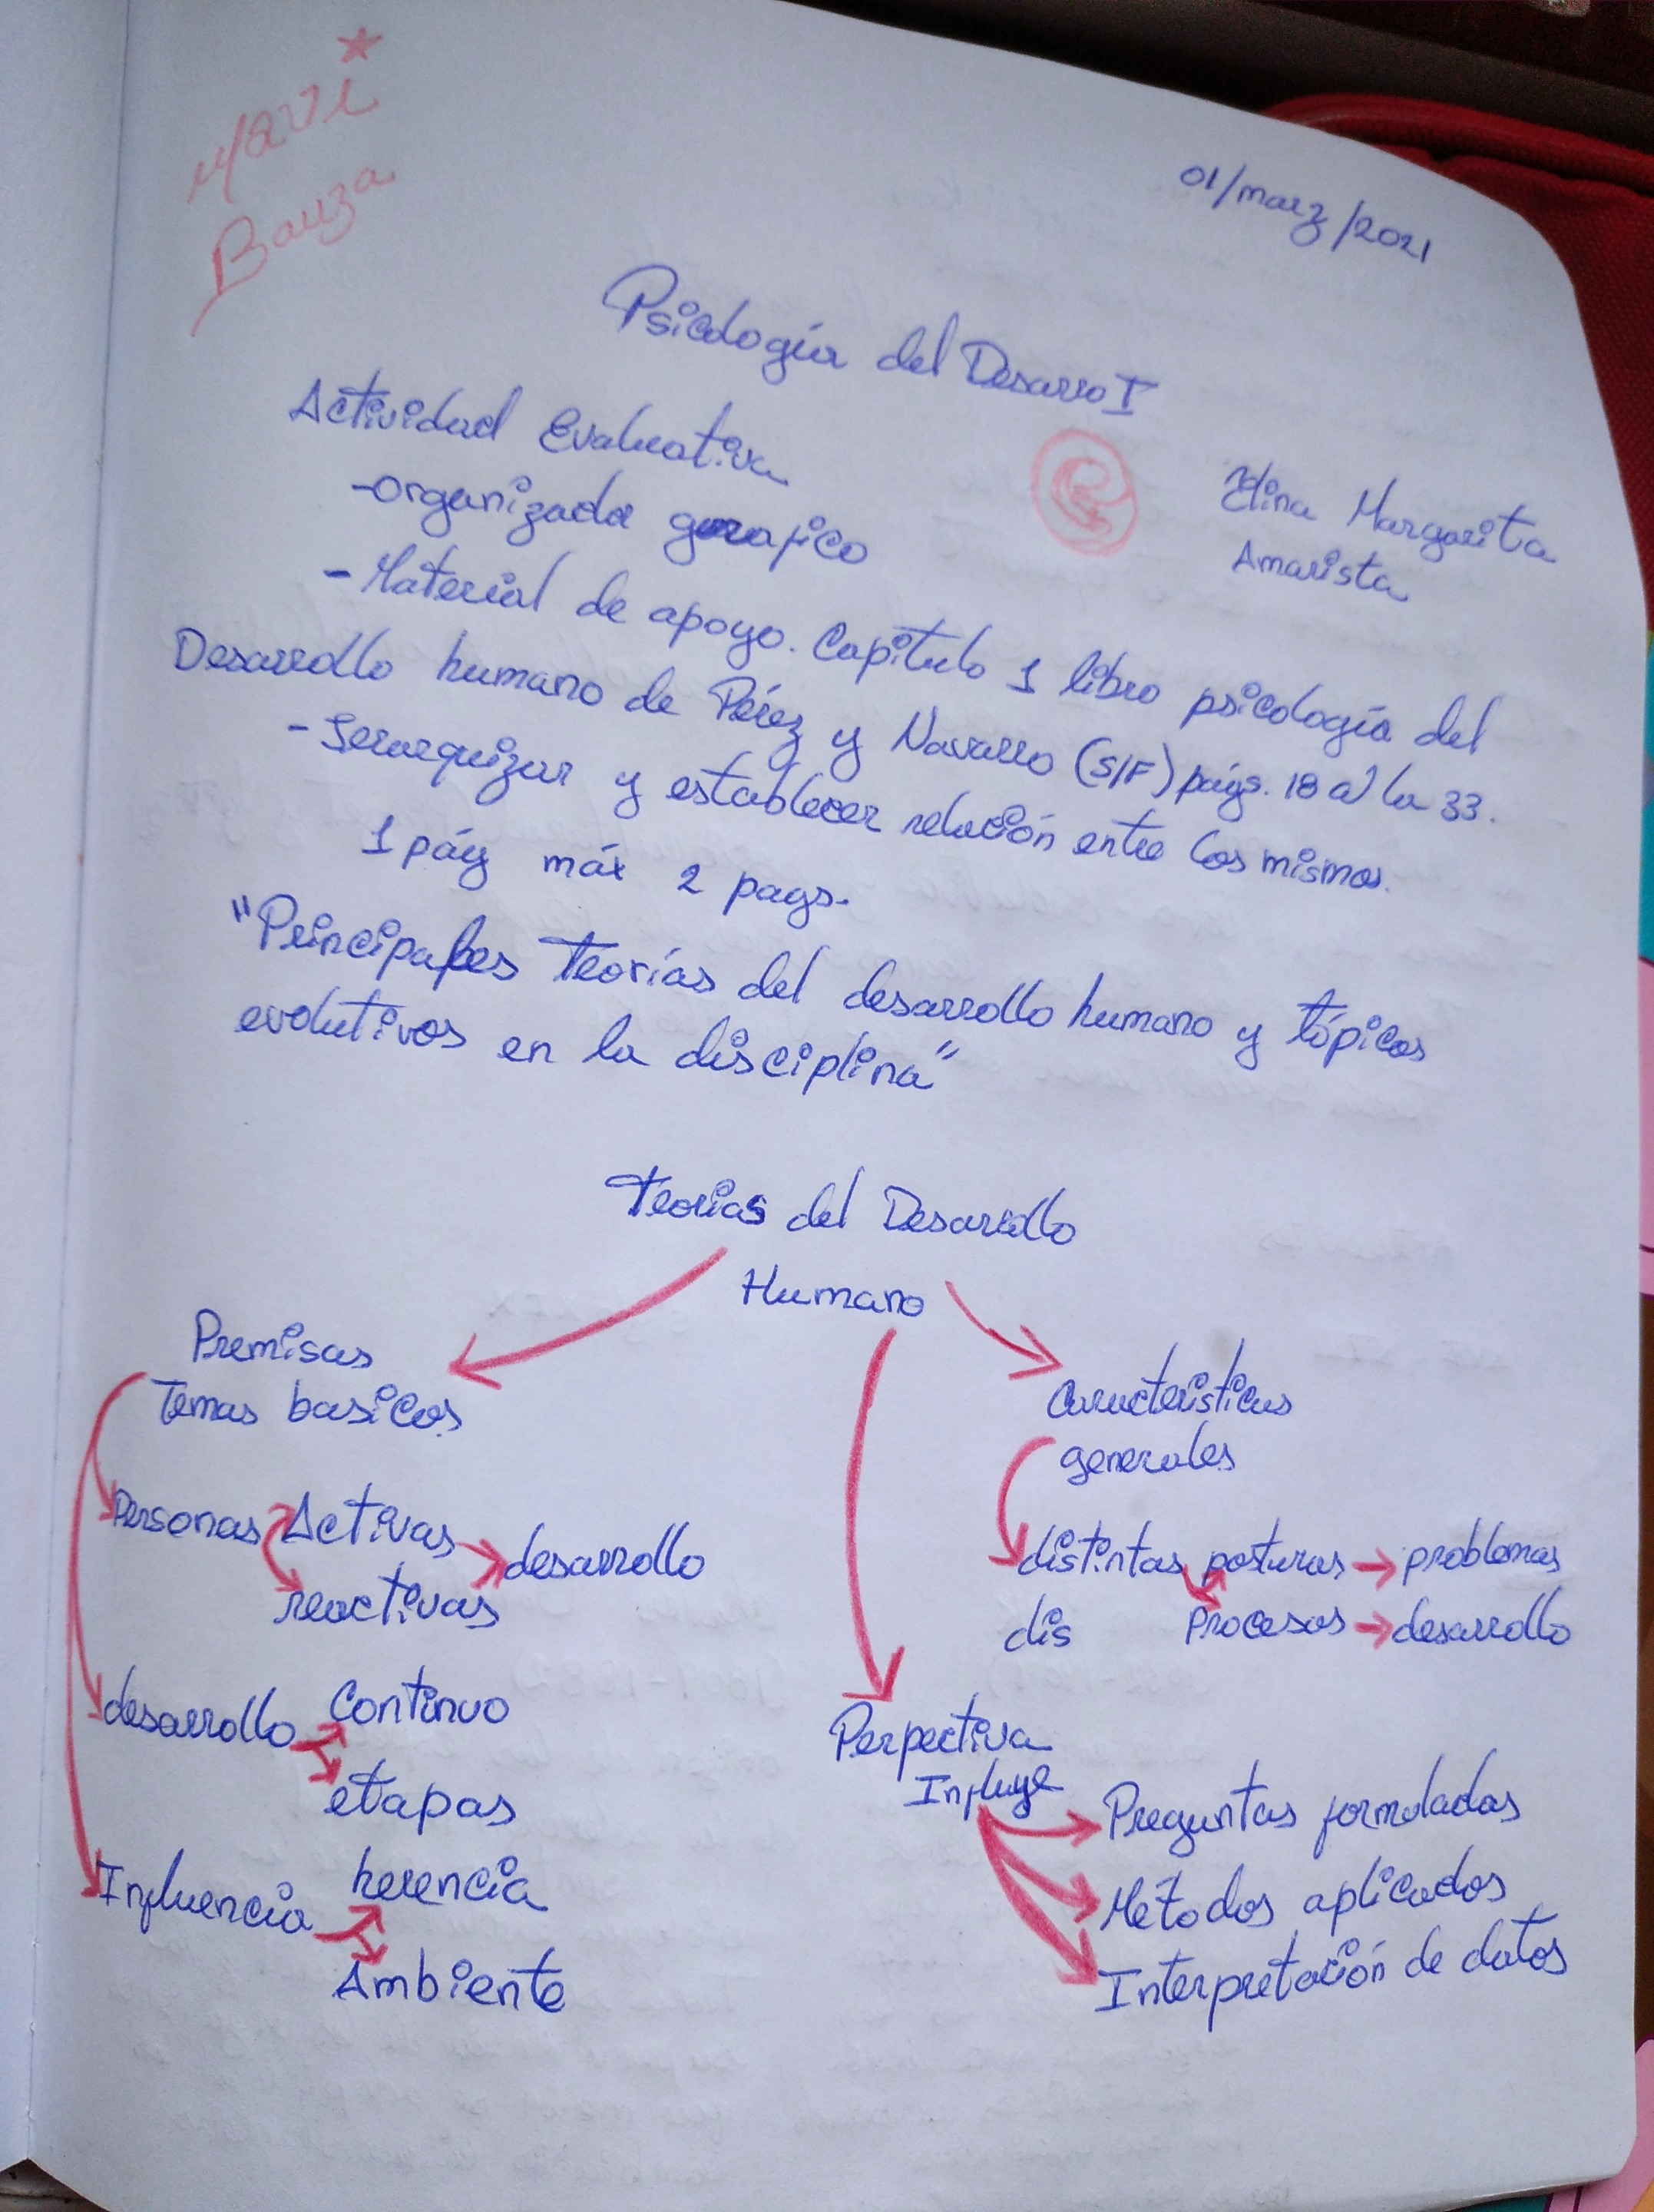 Mavi
Bauza
01/marz/2021
Psicología del Desarro I
Actividad Evaluativa
-organizador grafico
Margarita
Amarista
- Material de apoyo. Capitulo 1 libro psicología del
Desarrollo humano de Pérez y Navarro (S/F) págs. 18 a la 33.
- Jerarquizar y establecer relación entre los mismos.
1 pág máx 2 pags.
"Principales Teorías del desarrollo humano y tópicos
evolutivos en la disciplina"
Teorias del Desarrollo
Humano
Premisas
Temas basicos
Caracteristicas
generales
Personas Activas
reactivas
desarrollo
distintas posturas → problemas
dis procesos → desarrollo
desarrollo continuo
etapas
Influencia herencia
Ambiente
Perpectiva
Influye
Preguntas formuladas
Métodos aplicados
Interpretación de datos